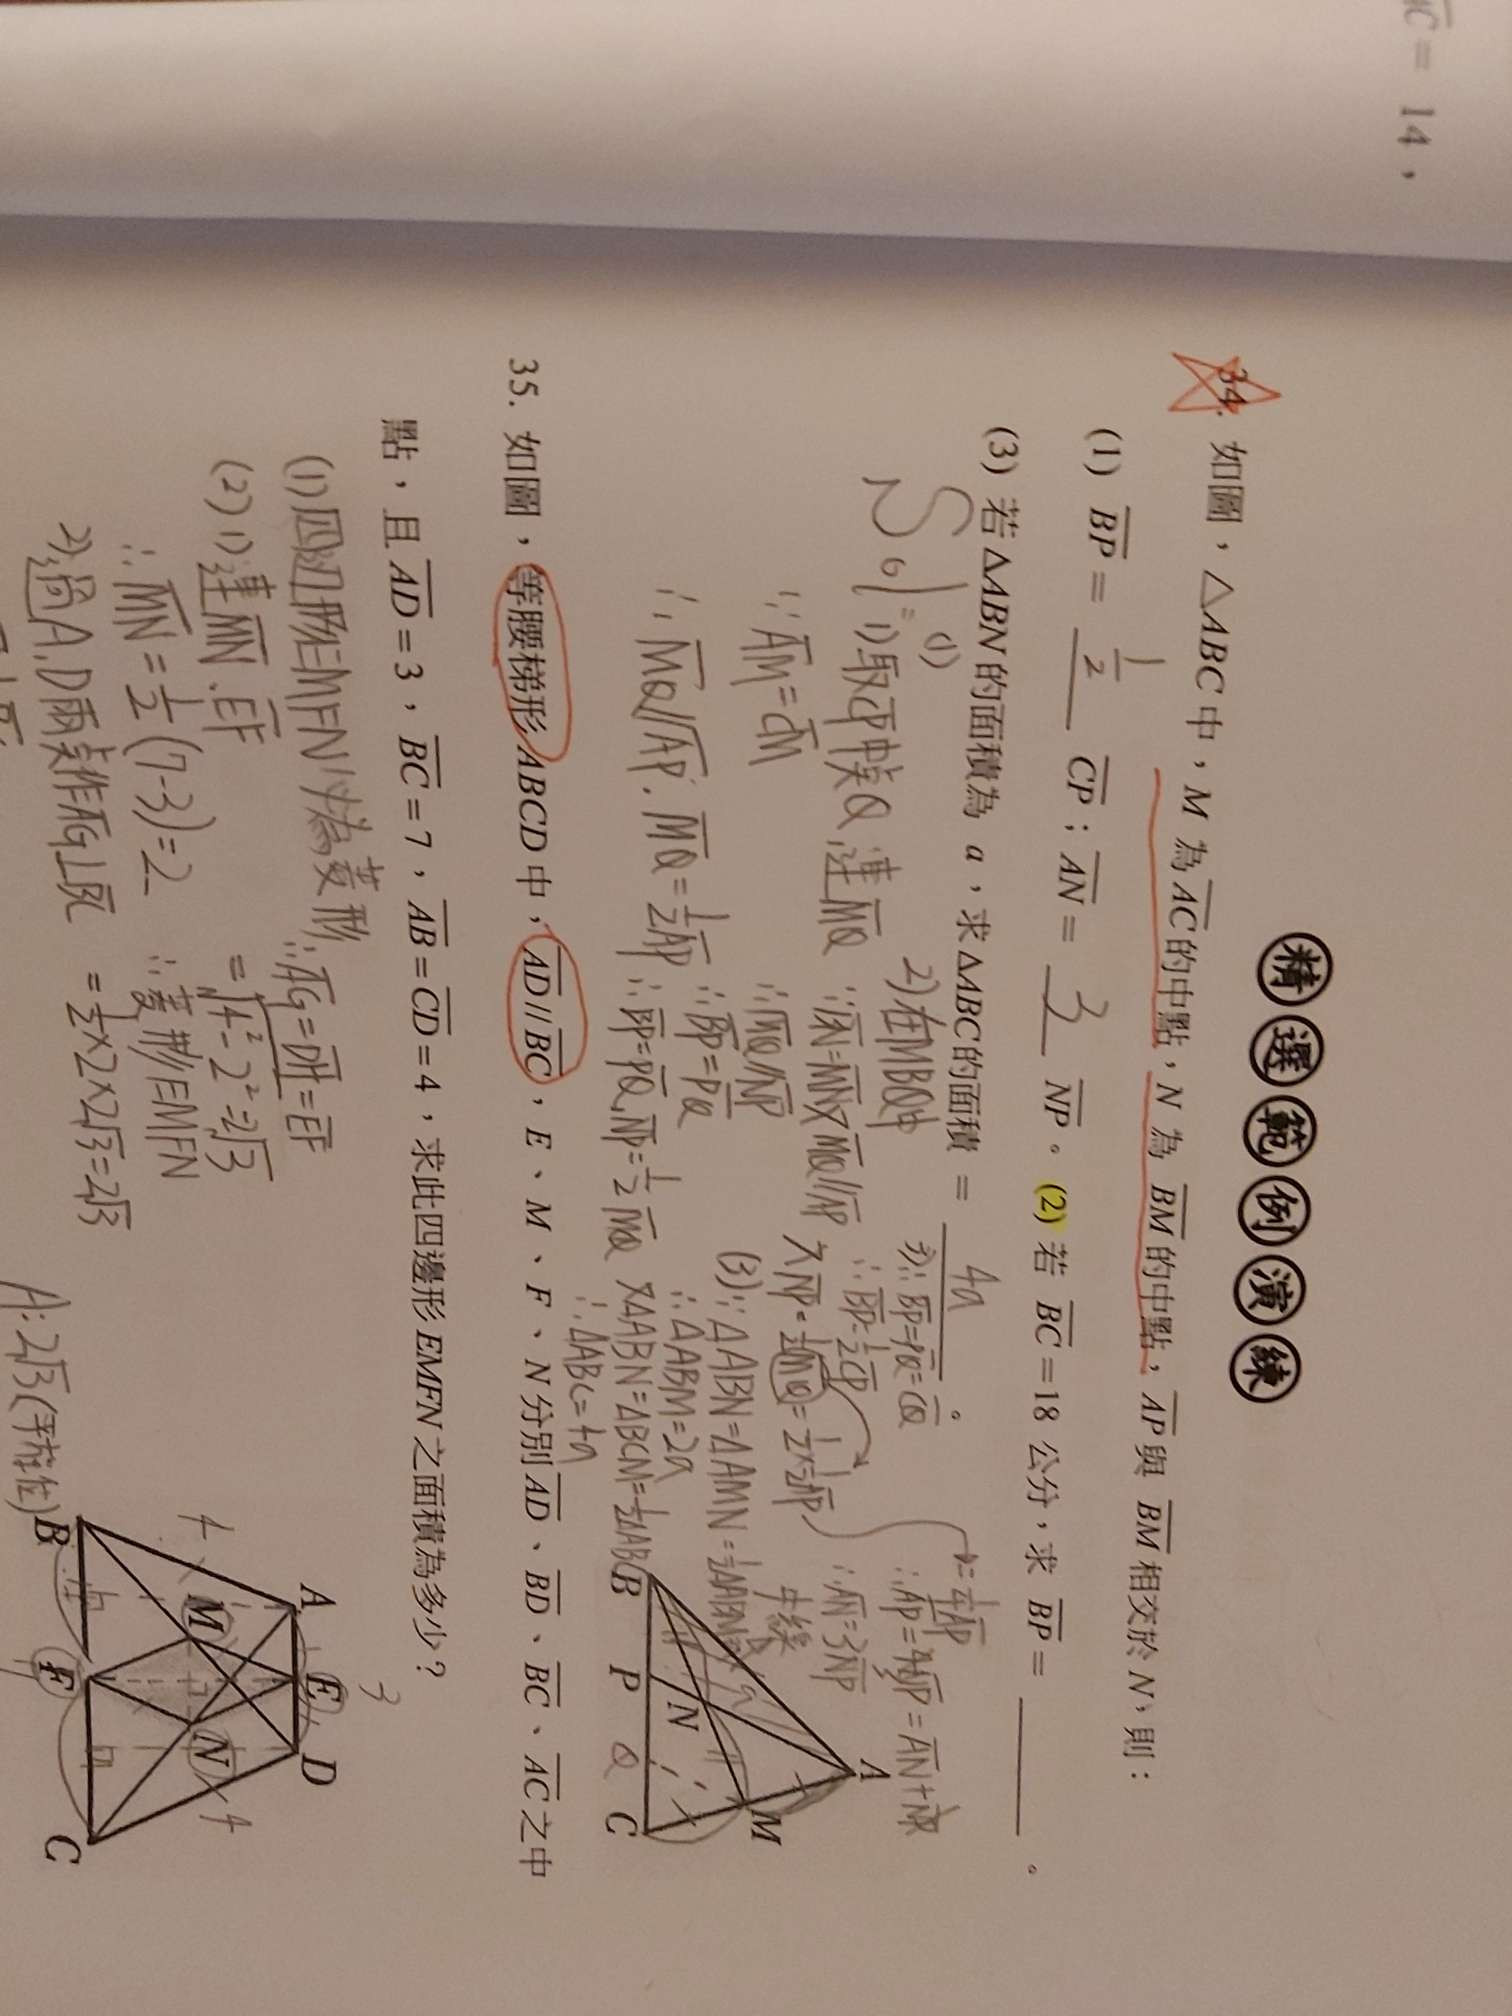 MC = 14，
精選範例演練
34. 如圖，△ABC中，M 為AC的中點，N 為 BM 的中點，AP與 BM 相交於 N，則：
(1) BP = 1/2 CP；AN = 3 NP。(2) 若 BC = 18 公分，求 BP = ＿＿＿。
(3) 若△ABN的面積為 a，求△ABC的面積 = 4a 。
Sol:
(1)
1)取CP中點Q,連MQ
∵AM=CM
∴MQ//AP.MQ=1/2AP
2)在MBQ中
∵BN=MN又MQ//AP
∴MQ//NP
∴BP=PQ
∴BP=PQ,NP=1/2MQ
3)∵BP=PQ=CQ
∴BP=1/2CP
又NP=1/2MQ=1/2×1/2AP
=1/4AP
∴AP=4NP=AN+NP
∴AN=3NP
(3)∵△ABN=△AMN=1/2△ABM
中線
∴△ABM=2a
又△ABM=△BCM=1/2△ABC
∴△ABC=4a
A
B
P
Q
C
N
M
a
35. 如圖，等腰梯形ABCD中，AD // BC，E、M、F、N分別AD、BD、BC、AC之中
點，且AD = 3，BC = 7，AB = CD = 4，求此四邊形EMFN之面積為多少？
(1)四邊形EMFN必為菱形
(2) 1)連MN.EF
∴MN=1/2(7-3)=2
2)過A.D兩點作AG⊥BC
∴AG=DH=EF
=√4²-2²=2√3
∴菱形EMFN
=1/2×2×2√3=2√3
A:2√3(平方單位)
3
A
E
D
4
M
N
4
B
F
C